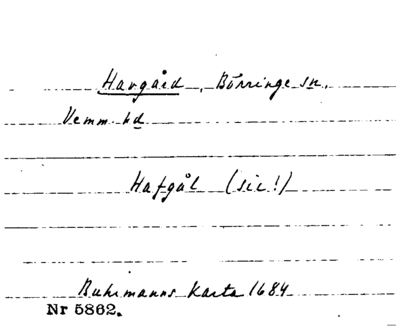 Havgård, Börringe sn,
Vemm. hd
Hafgål (sic!)
Buhrmanns Karta 1684
Nr 5862.